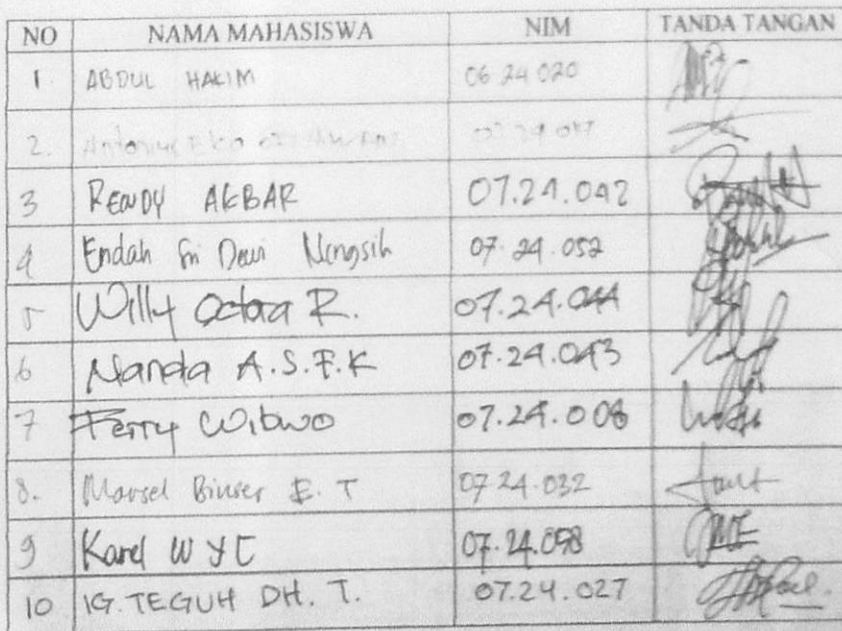 NO NAMA MAHASISWA NIM TANDA TANGAN
1. ABDUL HAKIM 06 24 020
2. Antonius Eko
3 RENDY AKBAR 07.24.042
4 Endah Sri Dewi Ningsih 07.24.052
5 Willy Octora R. 07.24.044
6 Nanda A.S.F.K 07.24.043
7 Ferry Wibwo 07.24.008
8. Marsel Binser E. T 07 24.032
9 Karel W Y C 07.24.098
10 IG. TEGUH DH. T. 07.24.027